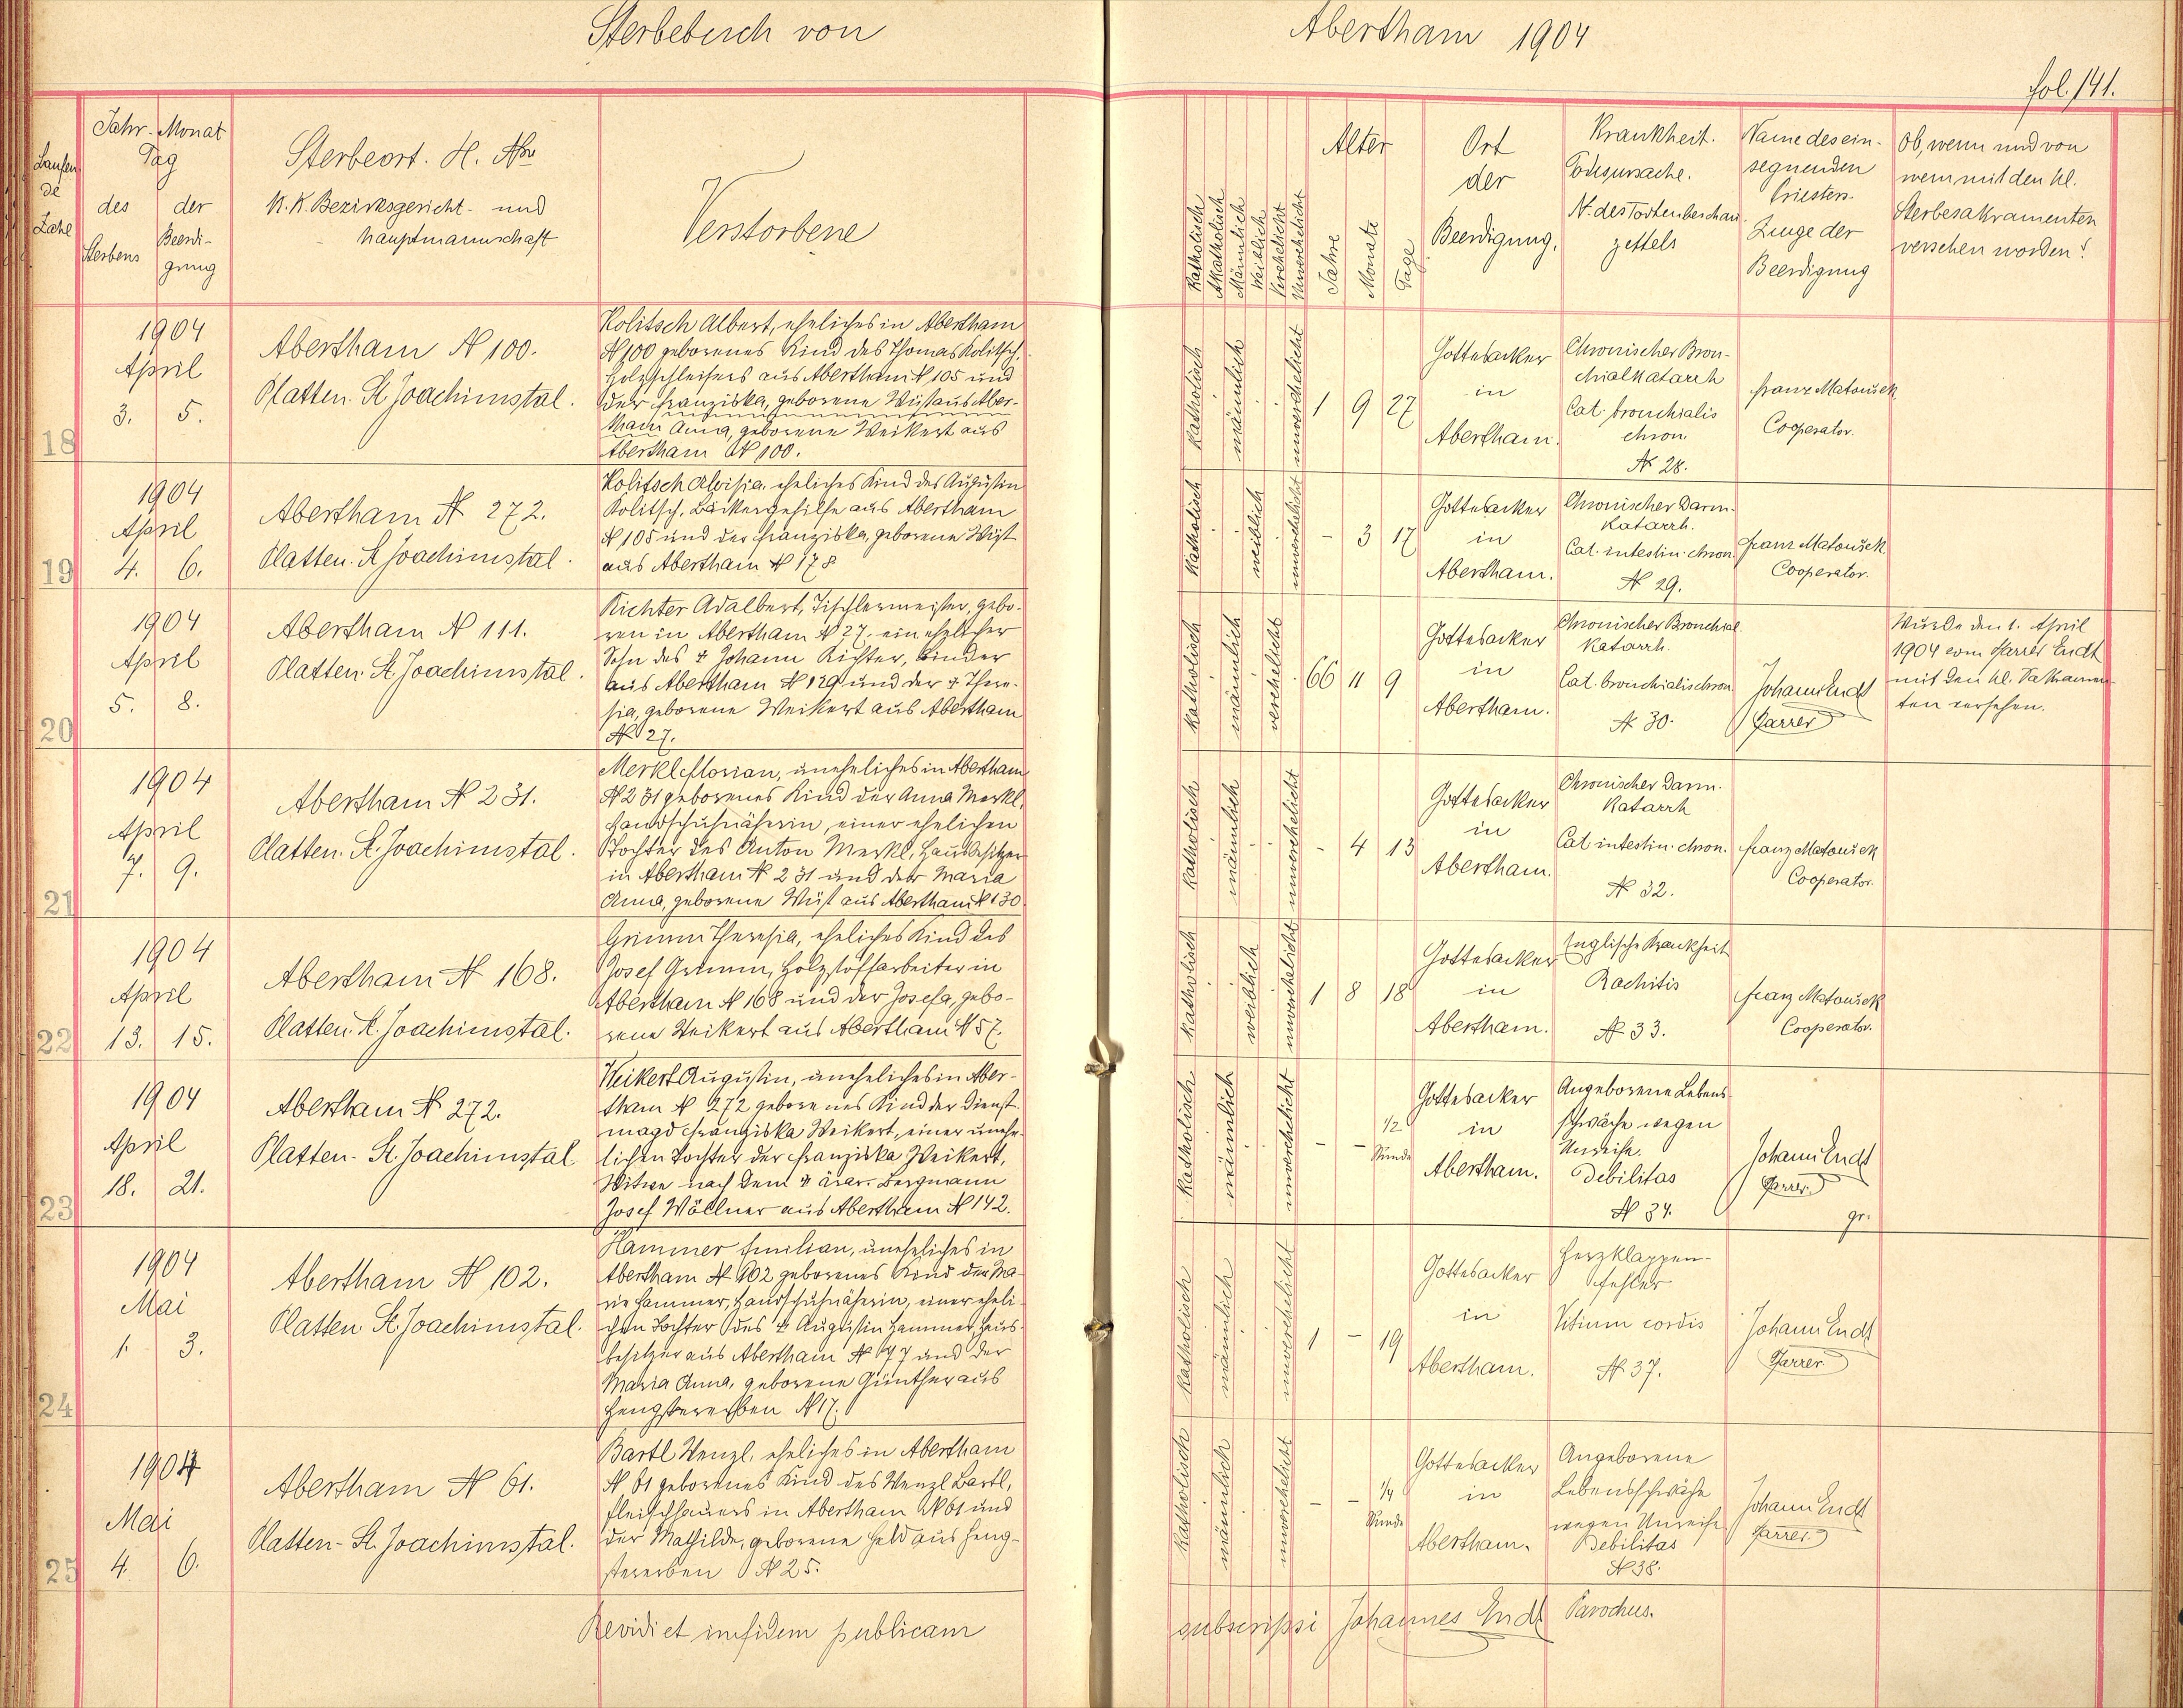 Sterbebuch von Abertham 1904
fol. 141.
Laufen
de
Zahl
Jahr. Monat
Tag
des
Sterbens
der
Beerdi-
gung
Sterbeort. H. Nro
K. K. Bezirksgericht- und
Hauptmannschaft
Verstorbene
Katholisch
Akatholisch
Männlich
Weiblich
Verehelicht
Unverehelicht
Alter
Jahre
Monate
Tage
Ort
der
Beerdigung.
Krankheit.
Todesursache.
N. des Todtenbeschau
zettels
Name des ein-
segnenden
Priesters.
Zeuge der
Beerdigung
Ob, wenn und von
wem mit den hl.
Sterbesakramenten
versehen worden?
18
1904
April
3. 5.
Abertham N 100.
Platten. St Joachimstal.
Kolitsch Albert, eheliches in Abertham
N 100 geborenes Kind des Thomas Kolitsch.
Holzschleifers aus Abertham N 105 und
der Franziska, geborene Wüst aus Aber-
tham Anna, geborene Weikert aus
Abertham N 100.
katholisch
männlich
unverehelicht
1 9 27
Gottesacker
in
Abertham.
Chronischer Bron-
chialkatarrh
Cat. bronchialis
chron.
N 28.
Franz Matoušek
Cooperator.
19
1904
April
4. 6.
Abertham N 272.
Platten. St Joachimstal.
Kolitsch Aloisia, eheliches Kind des Augustin
Kolitsch, Bäckergehilfe aus Abertham
N 105 und der Franziska, geborene Wüst
aus Abertham N 178
katholisch
weiblich
unverehelicht
- 3 17
Gottesacker
in
Abertham.
Chronischer Darm-
katarrh.
Cat. intestin. chron.
N 29.
Franz Matoušek
Cooperator.
20
1904
April
5. 8.
Abertham N 111.
Platten. St. Joachimstal.
Richter Adalbert, Tischlermeister, gebo-
ren in Abertham N 27, ein ehelicher
Sohn des † Johann Richter, Binder
aus Abertham N 129 und der † There-
sia, geborene Weikert aus Abertham
N 27.
katholisch
männlich
verehelicht
66 11 9
Gottesacker
in
Abertham.
Chronischer Bronchial
Katarrh.
Cat. bronchialis chron.
N 30.
Johann Endt
Pfarrer
Wurde den 1. April
1904 vom Pfarrer Endt
mit den hl. Sakramen-
ten versehen.
21
1904
April
7. 9.
Abertham N 231.
Platten. St. Joachimstal.
Merkl Florian, uneheliches in Abertham
N 231 geborenes Kind der Anna Merkl,
Handschuhnäherin, einer ehelichen
Tochter des Anton Merkl, Hausbesitzer
in Abertham N 231 und der Maria
Anna, geborene Wüst aus Abertham N 130
katholisch
männlich
unverehelicht
- 4 13
Gottesacker
in
Abertham.
Chronischer Darm-
Katarrh
Cat. intestin. chron.
N 32.
Franz Matoušek
Cooperator.
22
1904
April
13. 15.
Abertham N 168.
Platten. St. Joachimstal.
Grimm Theresia, eheliches Kind des
Josef Grimm, Holzstoffarbeiter in
Abertham N 168 und der Josefa, gebo-
rene Weikert aus Abertham N 57.
katholisch
weiblich
unverehelicht
1 8 18
Gottesacker
in
Abertham.
Englische Krankheit
Rachitis
N 33.
Franz Matoušek
Cooperator.
23
1904
April
18. 21.
Abertham N 272.
Platten- St. Joachimstal
Weikert Augustin, uneheliches in Aber-
tham N 272 geborenes Kind der Dienst-
magd Franziska Weikert, einer unehe-
lichen Tochter der Franziska Weikert,
Witwe nach dem † ärar. Bergmann
Josef Wöllner aus Abertham N 142.
katholisch
männlich
unverehelicht
- - 1/2
Stunde
Gottesacker
in
Abertham.
Angeborene Lebens-
schwäche wegen
Unreife.
Debilitas
N 34.
Johann Endt
Pfarrer.
gr.
24
1904
Mai
1. 3.
Abertham N 102.
Platten St. Joachimstal.
Hammer Emilian, uneheliches in
Abertham N 102 geborenes Kind der Ma-
rie Hammer, Handschuhnäherin, einer eheli-
chen Tochter des † Augustin Hammer, Haus-
besitzer aus Abertham N 77 und der
Maria Anna, geborene Günther aus
Hengstererben N 17.
katholisch
männlich
unverehelicht
1 - 19
Gottesacker
in
Abertham.
Herzklappen-
fehler
Vitium cordis
N. 37.
Johann Endt
Pfarrer
25
1904
Mai
4. 6.
Abertham N 61.
Platten- St. Joachimstal.
Bartl Wenzl, eheliches in Abertham
N 61 geborenes Kind des Wenzl Bartl,
Fleischhauers in Abertham N 61 und
der Mathilde, geborene Held aus Heng-
stererben N 25.
katholisch
männlich
unverehelicht
- - 1/4
Stunde
Gottesacker
in
Abertham.
Angeborene
Lebensschwäche
wegen Unreife
Debilitas
N 38.
Johann Endt
Pfarrer.
Revidi et in fidem publicam subscripsi Johannes Endt Parochus.